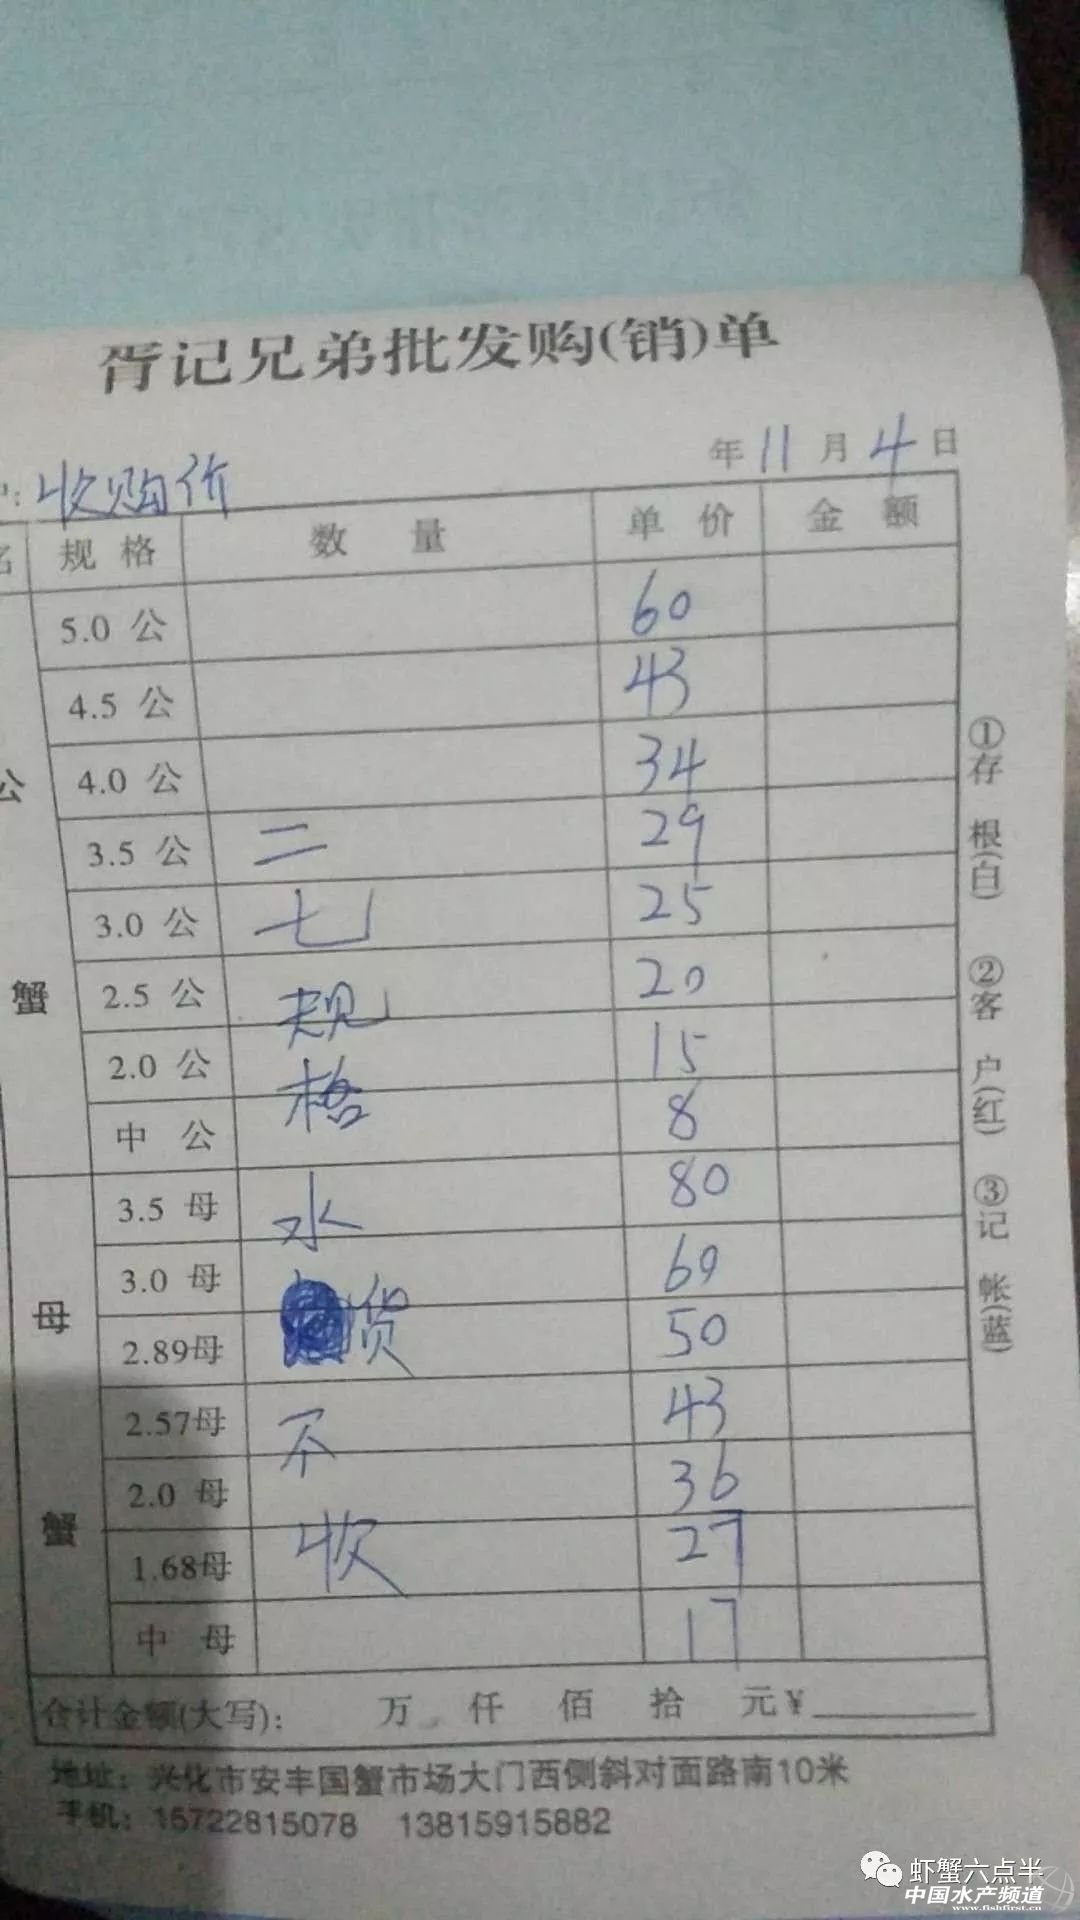 胥记兄弟批发购(销)单
年 11 月 4 日
: 收购价
名 规格 数量 单价 金额
公蟹
5.0 公 60
4.5 公 43
4.0 公 34
3.5 公 二 29
3.0 公 七 25
2.5 公 规 20
2.0 公 格 15
中 公 8
母蟹
3.5 母 水 80
3.0 母 货 60
2.89母 50
2.57母 不 43
2.0 母 36
1.68母 收 27
中 母 17
合计金额(大写): 万 仟 佰 拾 元¥
①存根(白) ②客户(红) ③记帐(蓝)
地址: 兴化市安丰国蟹市场大门西侧斜对面路南10米
手机: 15722815078 13815915882
虾蟹六点半
中国水产频道
www.fishfirst.cn